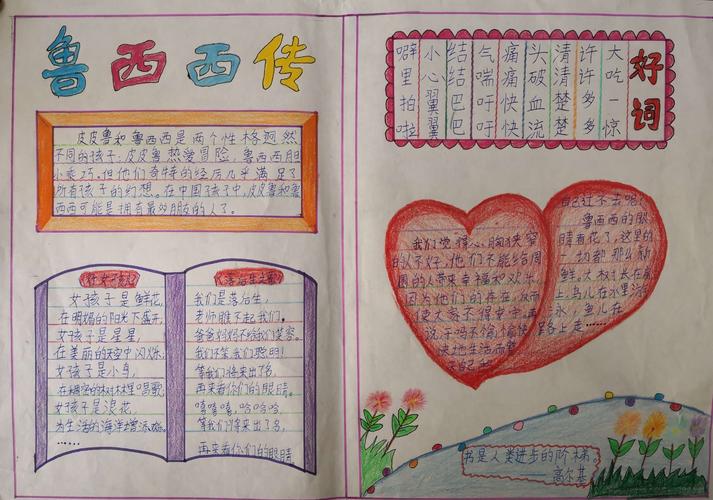 鲁西西传
皮皮鲁和鲁西西是两个性格迥然
不同的孩子:皮皮鲁热爱冒险,鲁西西胆
小乖巧。但他们奇特的经历几乎满足了
所有孩子的幻想。在中国孩子中,皮皮鲁和鲁
西西可能是拥有最多朋友的人了。
女孩子是鲜花,
在明媚的阳光下盛开,
女孩子是星星,
在美丽的天空中闪烁,
女孩子是小鸟,
在稠密的树林里唱歌,
女孩子是浪花,
为生活的海洋增添
……
落后生之歌
我们是落后生,
老师瞧不起我们。
爸爸妈妈不给我们笑容。
我们不笨我们聪明!
等我们将来出了名,
再来看你们的眼睛。
嘻嘻嘻,哈哈哈,
等我们将来出了名,
再来看你们的眼睛
好词
大吃一惊
许许多多
清清楚楚
头破血流
痛痛快快
气喘吁吁
结结巴巴
小心翼翼
噼里拍啦
我们觉得心胸狭窄
的人不好,他们不能给周
围的人带来幸福和欢乐,
因为他们的存在,反而
使大家不得安宁,再
说汗吗不愉愉快
快地生活而要
自己过不去呢!
鲁西西的眼
睛看花了,这里的
一切都那么新
鲜,大树长在扇
上,鸟儿在水里游
泳,鱼儿在
路上走……
书是人类进步的阶梯
高尔基